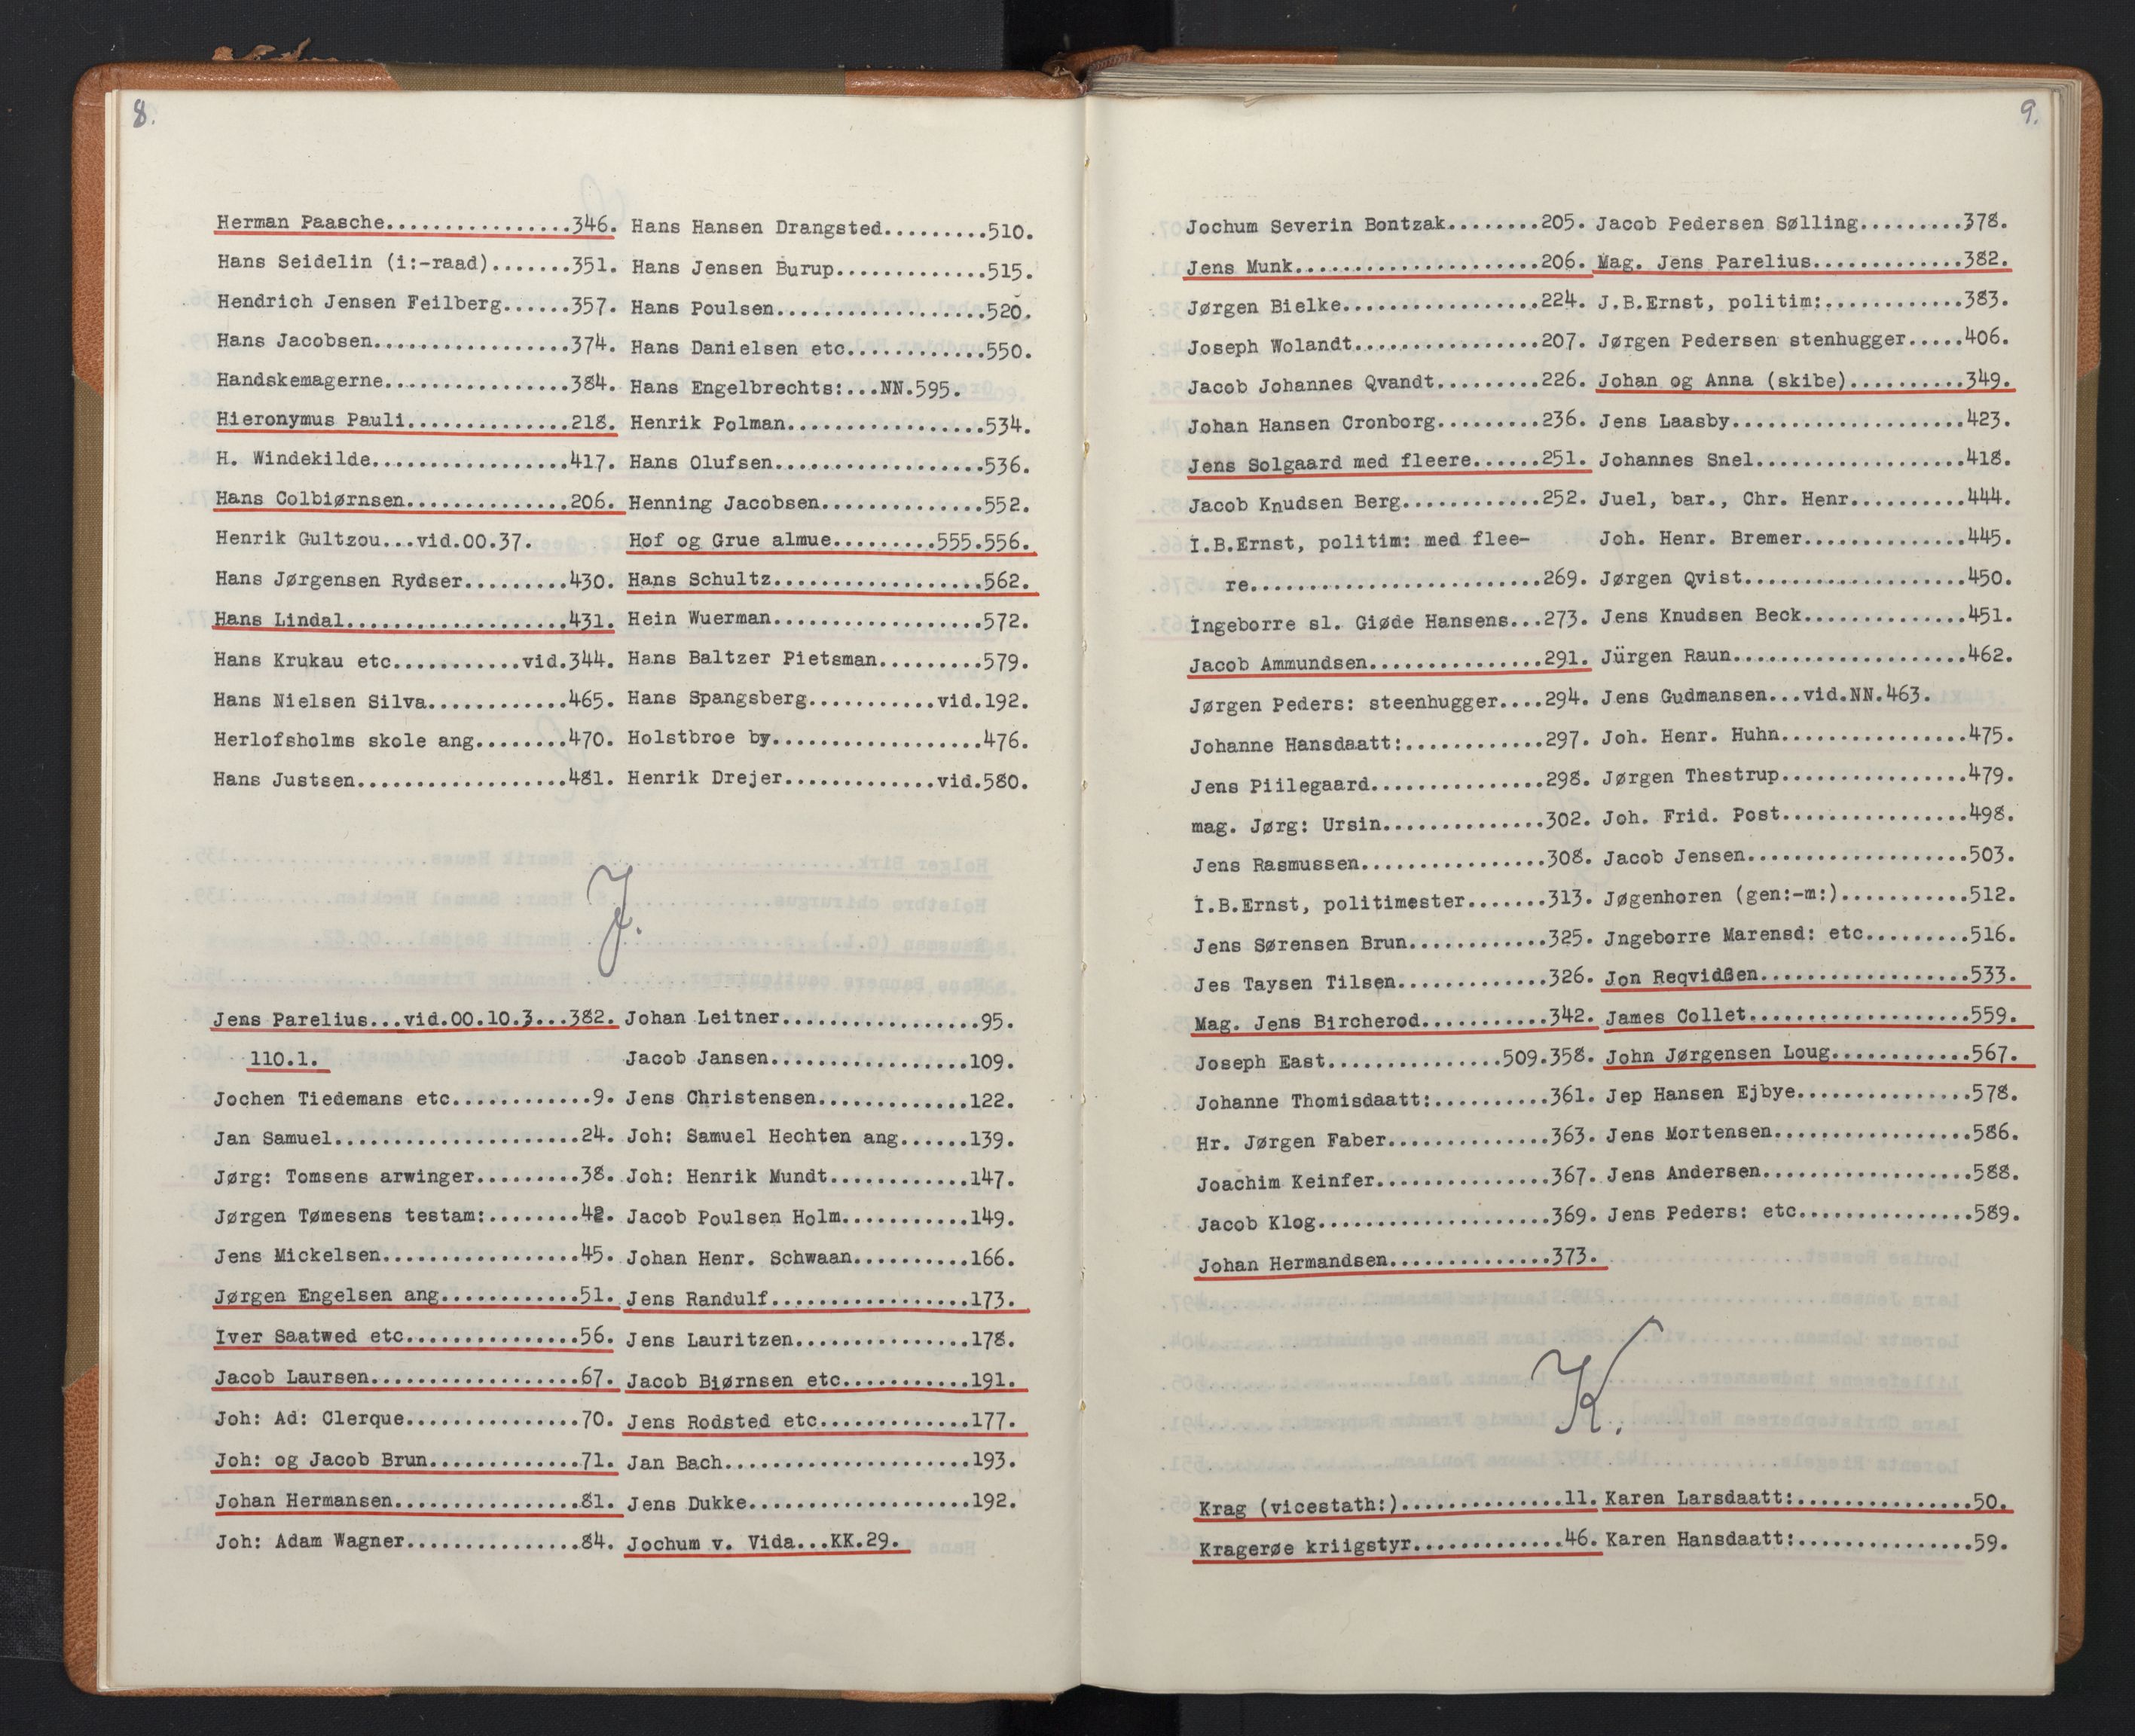 8.
Herman Paasche................346.
Hans Seidelin (i:-raad).......351.
Hendrich Jensen Feilberg......357.
Hans Jacobsen.................374.
Handskemagerne................384.
Hieronymus Pauli..............218.
H. Windekilde.................417.
Hans Colbiørnsen..............206.
Henrik Gultzou...vid.OO.37.
Hans Jørgensen Rydser.........430.
Hans Lindal...................431.
Hans Krukau etc...........vid.344.
Hans Nielsen Silva............465.
Herlofsholms skole ang........470.
Hans Justsen..................481.
Hans Hansen Drangsted.........510.
Hans Jensen Burup.............515.
Hans Poulsen..................520.
Hans Danielsen etc............550.
Hans Engelbrechts:...NN.595.
Henrik Polman.................534.
Hans Olufsen..................536.
Henning Jacobsen..............552.
Hof og Grue almue.........555.556.
Hans Schultz..................562.
Hein Wuerman..................572.
Hans Baltzer Pietsman.........579.
Hans Spangsberg...........vid.192.
Holstbroe by..................476.
Henrik Drejer.............vid.580.
J.
Jens Parelius...vid.OO.10.3...382.
110.1.
Jochen Tiedemans etc............9.
Jan Samuel.....................24.
Jørg: Tomsens arwinger.........38.
Jørgen Tømesens testam:........42.
Jens Mickelsen.................45.
Jørgen Engelsen ang............51.
Iver Saatwed etc...............56.
Jacob Laursen..................67.
Joh: Ad: Clerque...............70.
Joh: og Jacob Brun.............71.
Johan Hermansen................81.
Joh: Adam Wagner...............84.
Johan Leitner.................95.
Jacob Jansen.................109.
Jens Christensen.............122.
Joh: Samuel Hechten ang......139.
Joh: Henrik Mundt............147.
Jacob Poulsen Holm...........149.
Johan Henr. Schwaan..........166.
Jens Randulf.................173.
Jens Lauritzen...............178.
Jacob Biørnsen etc...........191.
Jens Rodsted etc.............177.
Jan Bach.....................193.
Jens Dukke...................192.
Jochum v. Vida...KK.29.
9.
Jochum Severin Bontzak........205.
Jens Munk.....................206.
Jørgen Bielke.................224.
Joseph Wolandt................207.
Jacob Johannes Qvandt.........226.
Johan Hansen Cronborg.........236.
Jens Solgaard med fleere......251.
Jacob Knudsen Berg............252.
I.B.Ernst, politim: med flee-
re.........................269.
Ingeborre sl. Giøde Hansens...273.
Jacob Ammundsen...............291.
Jørgen Peders: steenhugger....294.
Johanne Hansdaatt:............297.
Jens Piilegaard...............298.
mag. Jørg: Ursin..............302.
Jens Rasmussen................308.
I.B.Ernst, politimester.......313.
Jens Sørensen Brun............325.
Jes Taysen Tilsen.............326.
Mag. Jens Bircherod...........342.
Joseph East...............509.358.
Johanne Thomisdaatt:..........361.
Hr. Jørgen Faber..............363.
Joachim Keinfer...............367.
Jacob Klog....................369.
Johan Hermandsen..............373.
Jacob Pedersen Sølling.........378.
Mag. Jens Parelius.............382.
J.B.Ernst, politim:............383.
Jørgen Pedersen stenhugger.....406.
Johan og Anna (skibe)..........349.
Jens Laasby....................423.
Johannes Snel..................418.
Juel, bar., Chr. Henr..........444.
Joh. Henr. Bremer..............445.
Jørgen Qvist...................450.
Jens Knudsen Beck..............451.
Jürgen Raun....................462.
Jens Gudmansen...vid.NN.463.
Joh. Henr. Huhn................475.
Jørgen Thestrup................479.
Joh. Frid. Post................498.
Jacob Jensen...................503.
Jøgenhoren (gen:-m:)...........512.
Jngeborre Marensd: etc.........516.
Jon Reqvidßen..................533.
James Collet...................559.
John Jørgensen Loug............567.
Jep Hansen Ejbye...............578.
Jens Mortensen.................586.
Jens Andersen..................588.
Jens Peders: etc...............589.
K.
Krag (vicestath:)..............11.
Kragerøe kriigstyr.............46.
Karen Larsdaatt:...............50.
Karen Hansdaatt:...............59.